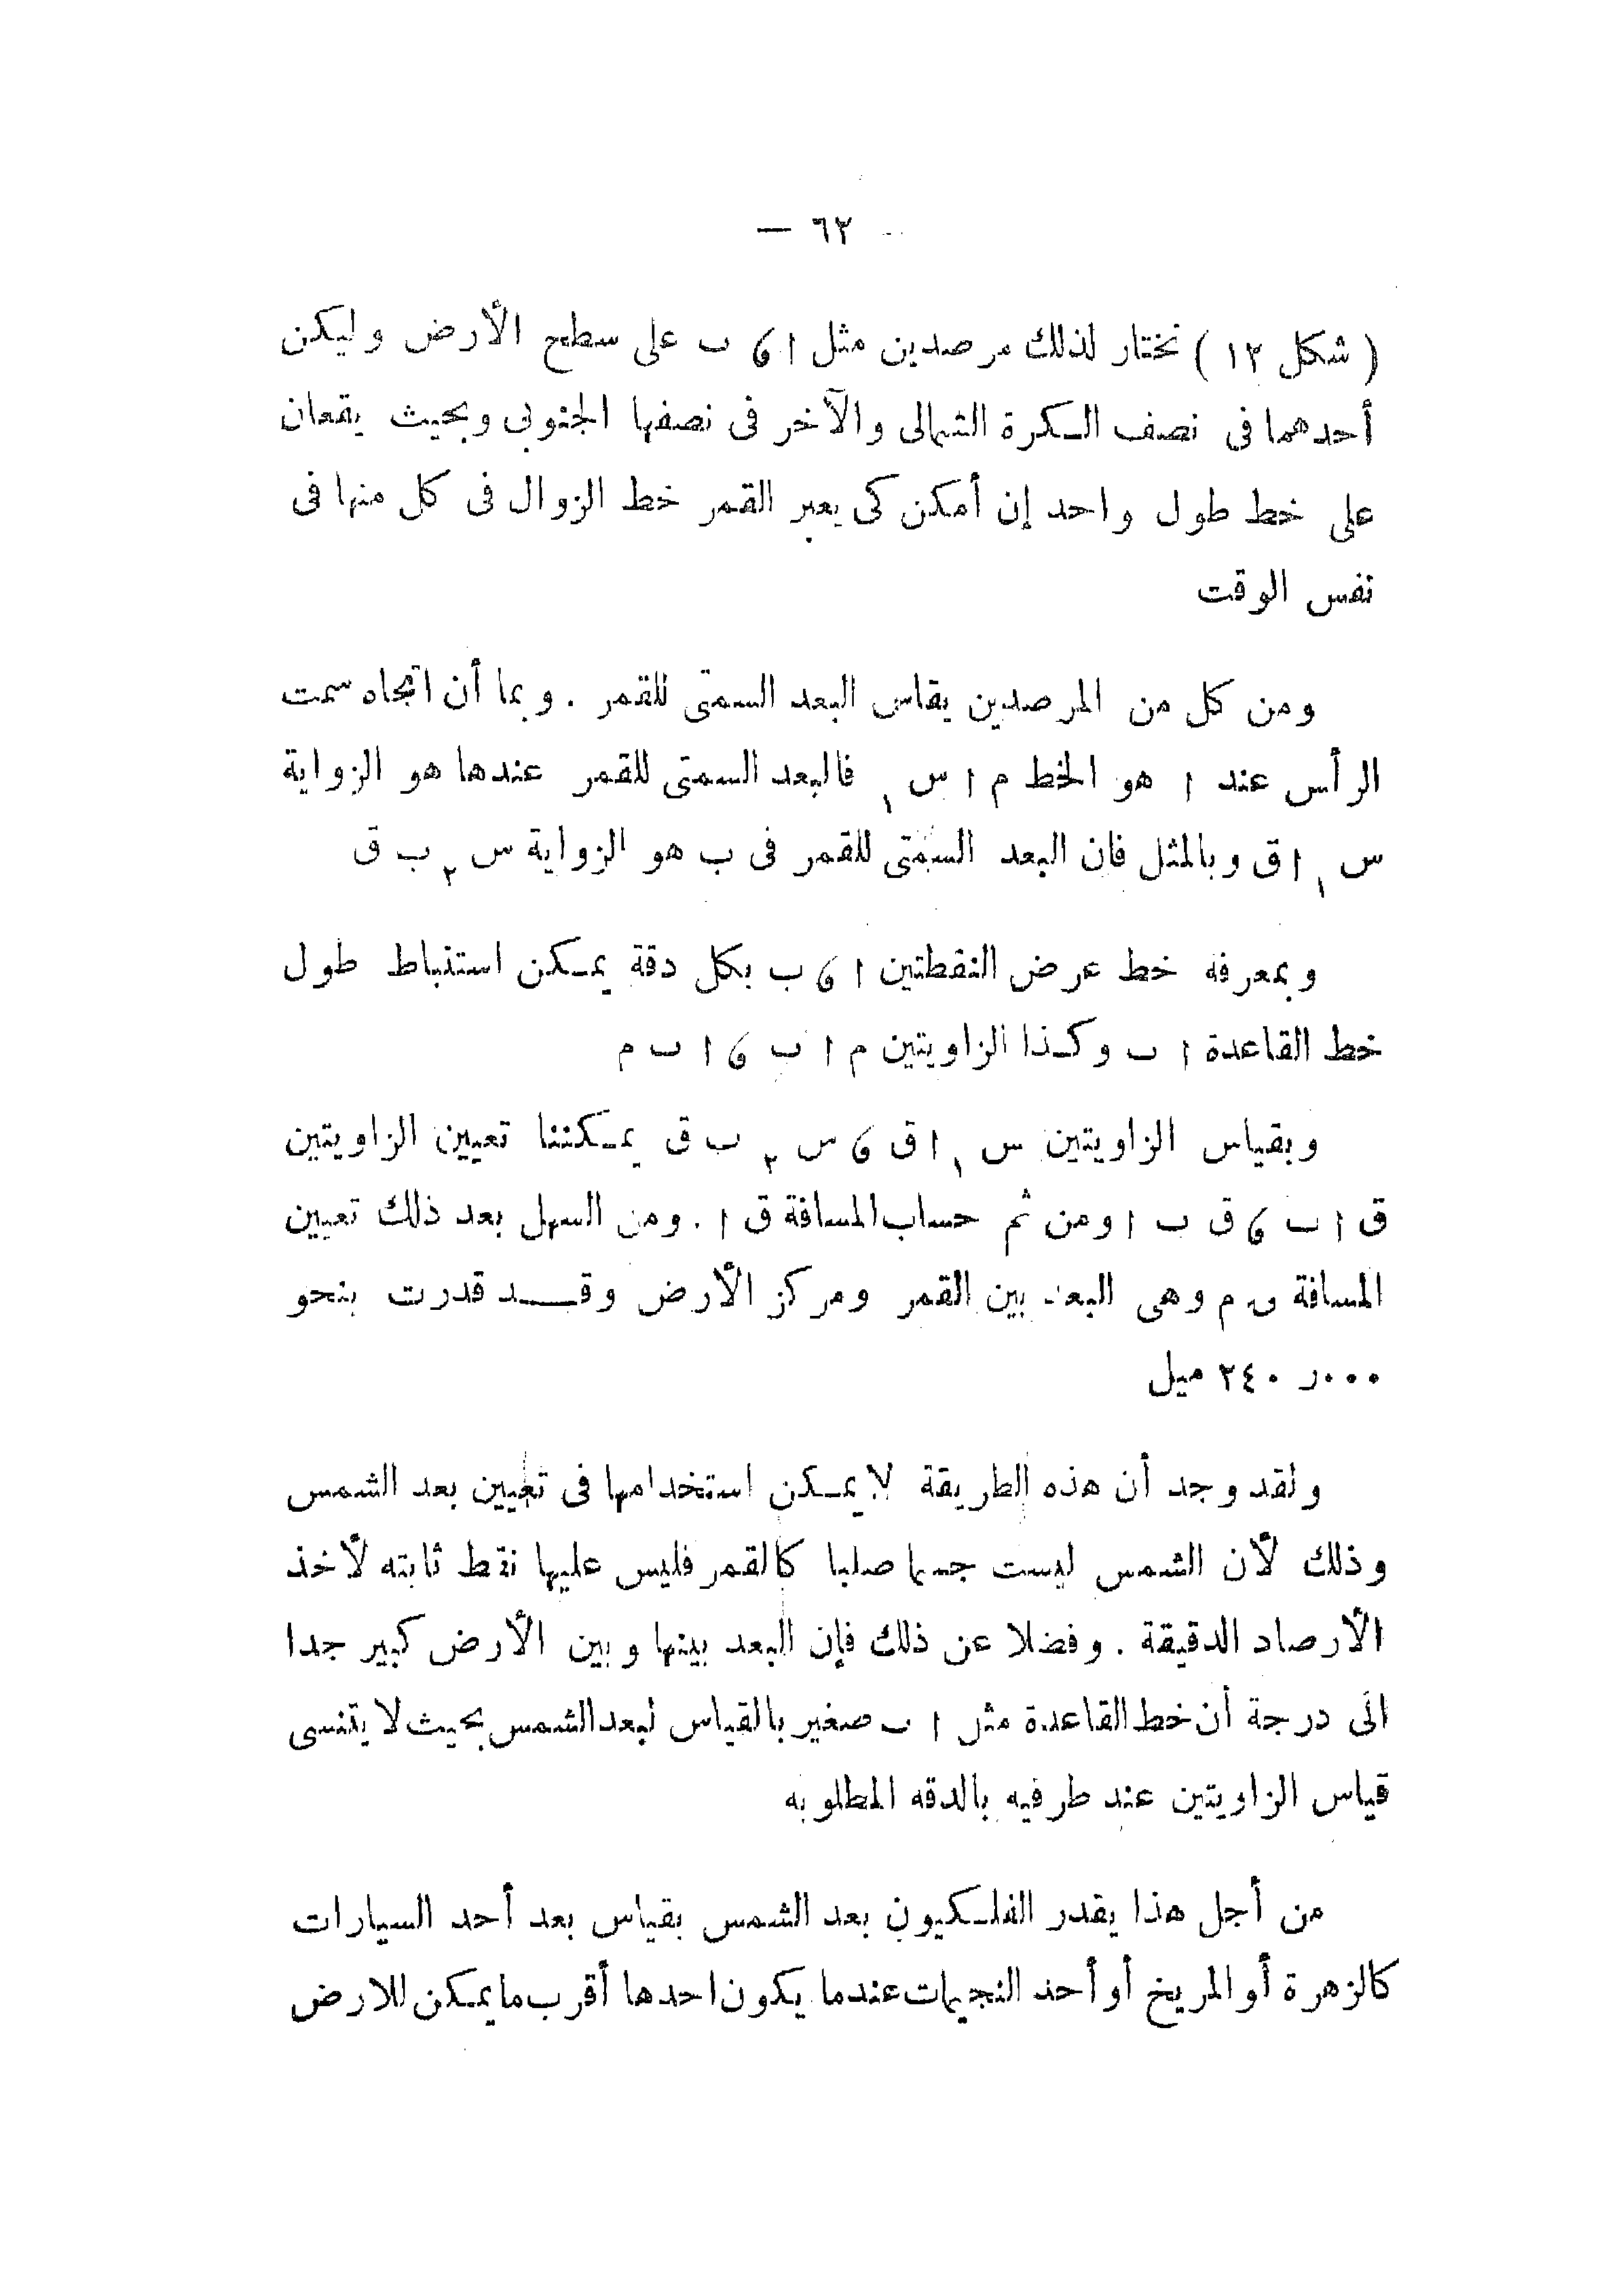 — ٦٢ —
( شكل ١٢ ) نختار لذلك مرصدين مثل ا ، ب على سطح الأرض وليكن
أحدهما فى نصف الكرة الشمالى والآخر فى نصفها الجنوبى وبحيث يقعان
على خط طول واحد إن أمكن كى يعبر القمر خط الزوال فى كل منها فى
نفس الوقت
ومن كل من المرصدين يقاس البعد السمتى للقمر . وبما أن اتجاه سمت
الرأس عند ا هو الخط م ا س١ فالبعد السمتى للقمر عندها هو الزواية
س١ ا ق وبالمثل فان البعد السمتى للقمر فى ب هو الزواية س٢ ب ق
وبمعرفة خط عرض النقطتين ا ، ب بكل دقة يمكن استنباط طول
خط القاعدة ا ب وكذا الزاويتين م ا ب ، ا ب م
وبقياس الزاويتين س١ ا ق ، س٢ ب ق يمكننا تعيين الزاويتين
ق ا ب ، ق ب ا ومن ثم حساب المسافة ق ا . ومن السهل بعد ذلك تعيين
المسافة ق م وهى البعد بين القمر ومركز الأرض وقد قدرت بنحو
٢٤٠ر٠٠٠ ميل
ولقد وجد أن هذه الطريقة لا يمكن استخدامها فى تعيين بعد الشمس
وذلك لأن الشمس ليست جسما صلبا كالقمر فليس عليها نقط ثابته لأخذ
الأرصاد الدقيقة . وفضلا عن ذلك فإن البعد بينها وبين الأرض كبير جدا
الى درجة أن خط القاعدة مثل ا ب صغير بالقياس لبعد الشمس بحيث لا يتنسى
قياس الزاويتين عند طرفيه بالدقه المطلوبه
من أجل هذا يقدر الفلكيون بعد الشمس بقياس بعد أحد السيارات
كالزهرة أو المريخ أو أحد النجيمات عندما يكون احدها أقرب ما يمكن للارض